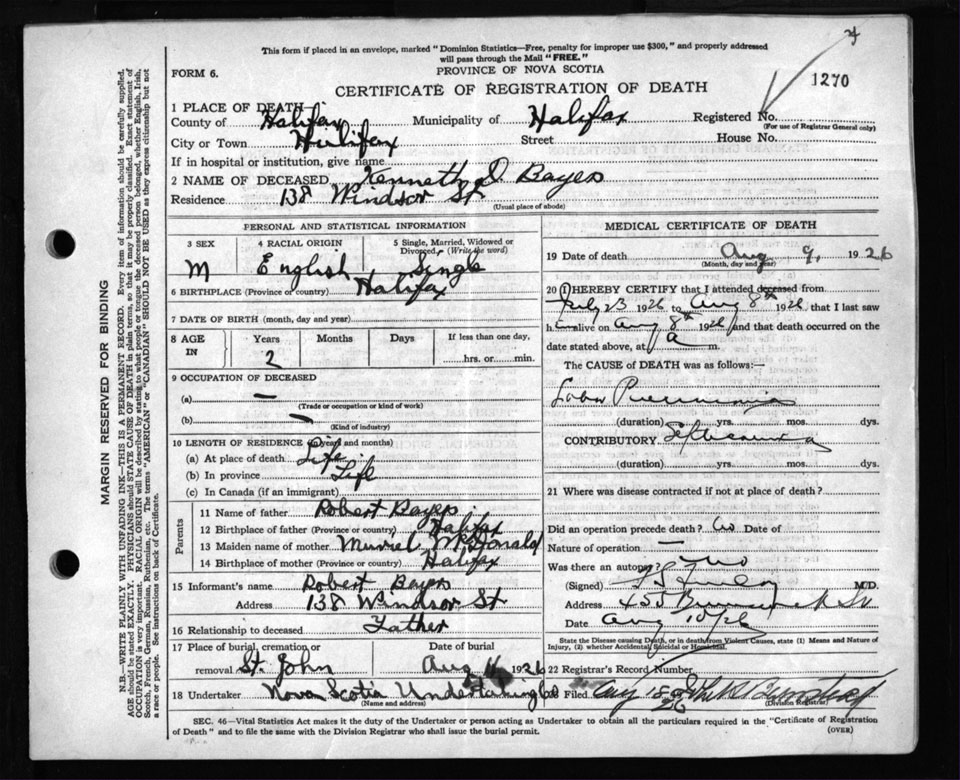 4
This form if placed in an envelope, marked "Dominion Statistics—Free, penalty for improper use $300," and properly addressed
will pass through the Mail "FREE."
PROVINCE OF NOVA SCOTIA
FORM 6.
1270
CERTIFICATE OF REGISTRATION OF DEATH
1 PLACE OF DEATH—
County of Halifax Municipality of Halifax Registered No.
(For use of Registrar General only)
City or Town Halifax Street House No.
If in hospital or institution, give name
2 NAME OF DECEASED Kenneth D Bayes
Residence 138 Windsor St
(Usual place of abode)
PERSONAL AND STATISTICAL INFORMATION
3 SEX 4 RACIAL ORIGIN 5 Single, Married, Widowed or
Divorced, (Write the word)
M English Single
6 BIRTHPLACE (Province or country) Halifax
7 DATE OF BIRTH (month, day and year)
8 AGE IN Years Months Days If less than one day,
2 hrs. or min.
9 OCCUPATION OF DECEASED
(a) —
(Trade or occupation or kind of work)
(b) —
(Kind of industry)
10 LENGTH OF RESIDENCE (in years and months)
(a) At place of death Life
(b) In province Life
(c) In Canada (if an immigrant)
Parents
11 Name of father Robert Bayes
12 Birthplace of father (Province or country) Halifax
13 Maiden name of mother Muriel McDonald
14 Birthplace of mother (Province or country) Halifax
15 Informant's name Robert Bayes
Address 138 Windsor St
16 Relationship to deceased Father
17 Place of burial, cremation or Date of burial
removal St. John Aug 11 1926
18 Undertaker Nova Scotia Undertaking Co
(Name and address)
MEDICAL CERTIFICATE OF DEATH
19 Date of death Aug 9, 1926
(Month, day and year)
20 I HEREBY CERTIFY that I attended deceased from
July 23 1926 to Aug 8th 1926 that I last saw
him alive on Aug 8th 1926 and that death occurred on
date stated above, at a m.
The CAUSE OF DEATH was as follows:—
Lobar Pneumonia
(duration) yrs. mos. dys.
CONTRIBUTORY Septicaemia
(duration) yrs. mos. dys.
21 Where was disease contracted if not at place of death?
Did an operation precede death? No Date of
Nature of operation —
Was there an autopsy? No
(Signed) M.D.
Address 455 Brunswick St
Date Aug 10/26
State the Disease causing Death, or in death from Violent Causes, state (1) Means and Nature of
Injury, (2) whether Accidental, Suicidal or Homicidal.
22 Registrar's Record Number
Filed Aug 18
26
(Division Registrar)
SEC. 46—Vital Statistics Act makes it the duty of the Undertaker or person acting as Undertaker to obtain all the particulars required in the "Certificate of Registration
of Death" and to file the same with the Division Registrar who shall issue the burial permit.
(OVER)
MARGIN RESERVED FOR BINDING
N.B.—WRITE PLAINLY WITH UNFADING INK—THIS IS A PERMANENT RECORD. Every item of information should be carefully supplied.
AGE should be stated EXACTLY. PHYSICIANS should STATE CAUSE OF DEATH in plain terms, so that it may be properly classified. Exact statement of
OCCUPATION is very important. RACIAL ORIGIN will be described by stating to what people or tongue the deceased person belonged, whether English, Irish,
Scotch, French, German, Russian, Ruthenian, etc. The terms "AMERICAN" or "CANADIAN" SHOULD NOT BE USED as they express citizenship but not
a race or people. See instructions on back of Certificate.